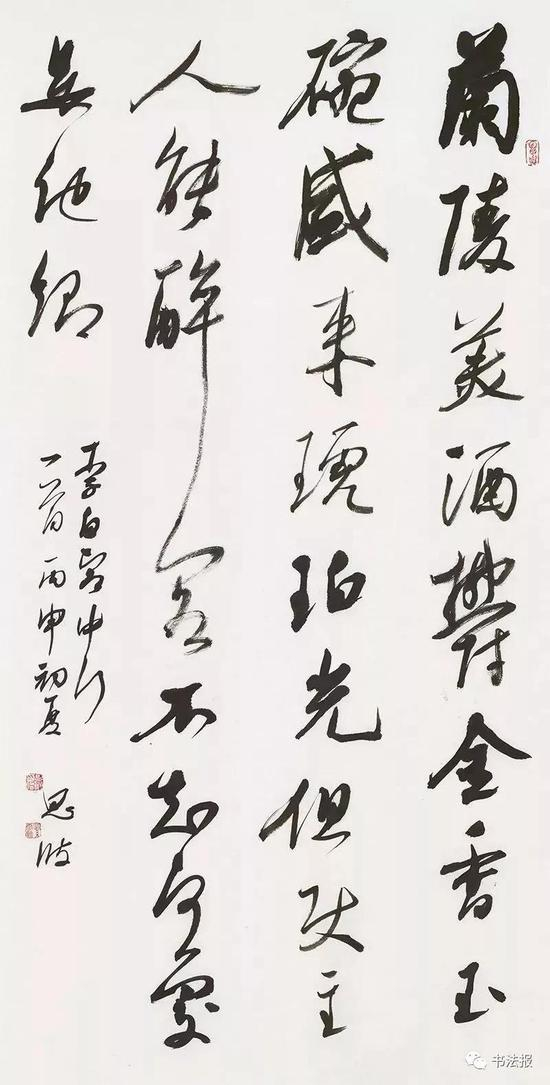 蘭陵美酒鬱金香玉
碗盛来琥珀光但使主
人能醉客不知何處
是他鄉
李白客中行
一首丙申初夏
思
书法报